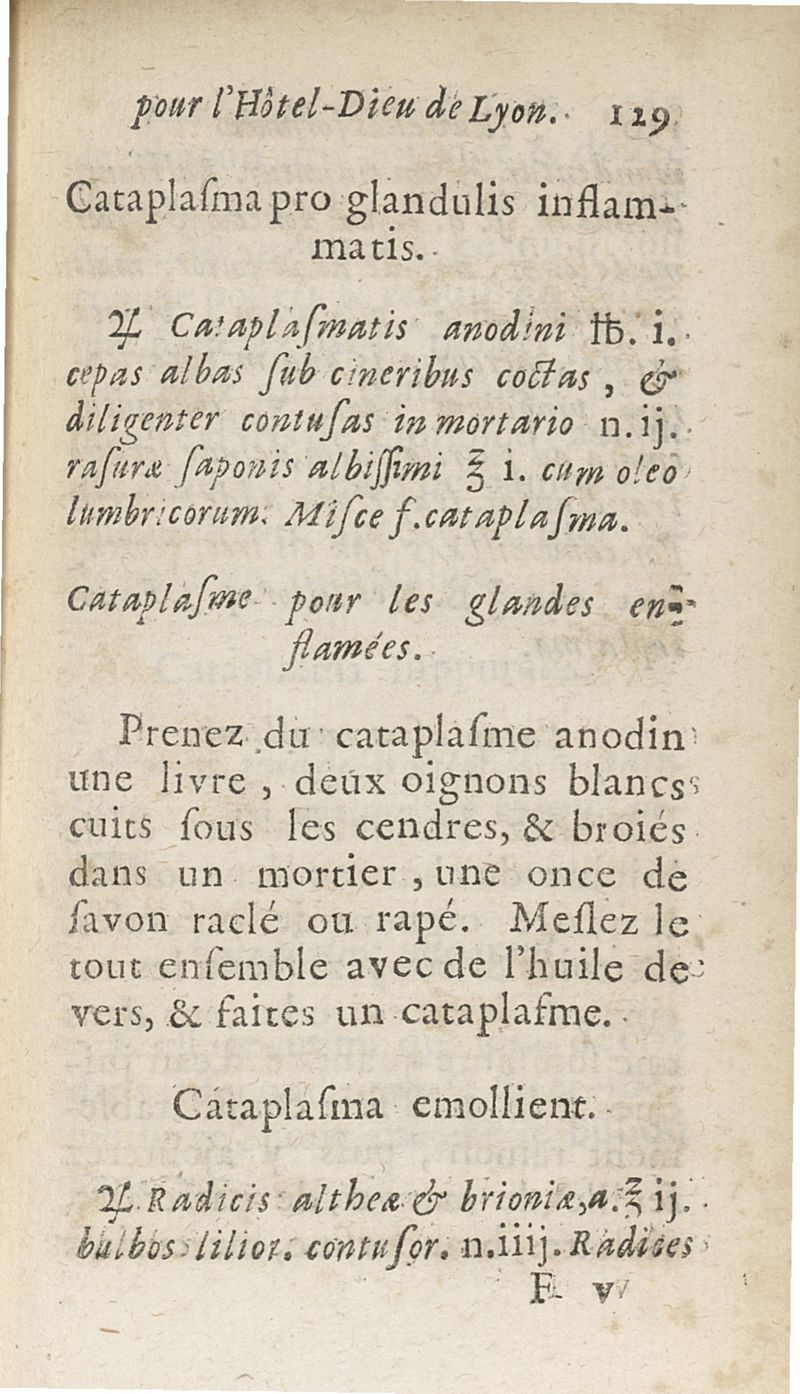 pour l'Hôtel-Dieu de Lyon. 129
Cataplaſma pro glandulis inflam-
matis.
♃ Cataplaſmatis anodini ℔. i.
cepas albas ſub cineribus coctas, &
diligenter contuſas in mortario n. ij.
raſuræ ſaponis albiſſimi ℥ i. cum oleo
lumbricorum. Miſce f. cataplaſma.
Cataplaſme pour les glandes en-
flamées.
Prenez du cataplaſme anodin
une livre, deux oignons blancs
cuits ſous les cendres, & broiés
dans un mortier, une once de
ſavon raclé ou rapé. Meſlez le
tout enſemble avec de l'huile de
vers, & faites un cataplaſme.
Cataplaſma emollient.
♃ Radicis altheæ & brioniæ, a. ℥ ij.
bulbos lilior. contuſor. n. iiij. Radices
F v